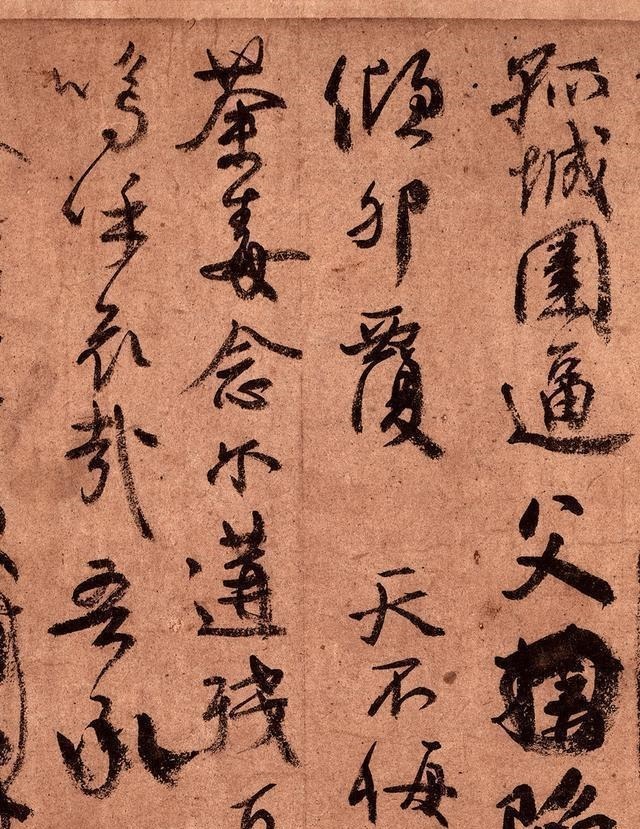 孤城圍逼父陷
傾卵覆 天不悔
荼毒念尔遘殘
嗚呼哀哉吾承